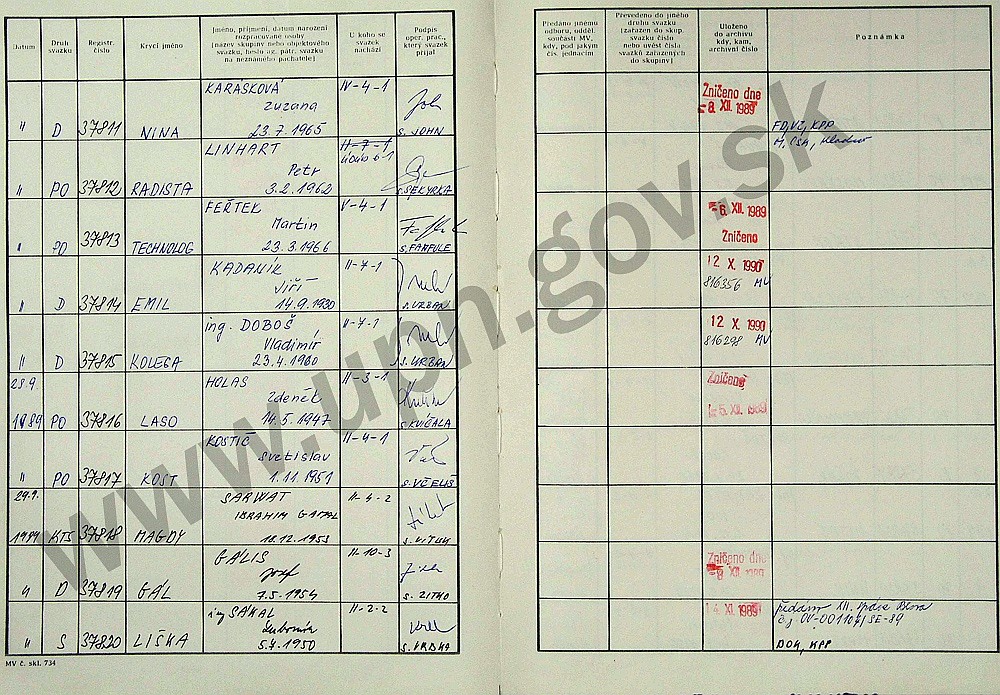 Datum
Druh svazku
Registr. číslo
Krycí jméno
Jméno, příjmení, datum narození
rozpracované osoby
[název skupiny nebo objektového
svazku, heslo ag. pátr. svazku
na neznámého pachatele]
U koho se
svazek
nachází
Podpis
oper. prac.,
který svazek
přijal
Předáno jinému
odboru, odděl.
součásti MV,
kdy, pod jakým
čís. jednacím
Převedeno do jiného
druhu svazku
[zařazen do skup.
svazku číslo
nebo uvést čísla
svazků zařazených
do skupiny]
Uloženo
do archivu
kdy, kam,
archivní číslo
Poznámka
" D 37811 NINA
KARÁSKOVÁ
Zuzana
23.7.1965
IV-4-1
S. JOHN
Zničeno dne
-8. XII. 1989
FD, VZ, KPP
" PO 37812 RADISTA
LINHART
Petr
3.2.1962
II-7-1
S. SEKYRKA
" PO 37813 TECHNOLOG
FEŘTEK
Martin
23.3.1966
V-4-1
S. FARFULE
-6. XII. 1989
Zničeno
" D 37814 EMIL
KADANÍK
Jiří
14.9.1930
II-7-1
S. URBAN
12 X. 1990
816356 MV
" D 37815 KOLEGA
ing. DOBOŠ
Vladimír
23.4.1960
II-7-1
S. URBAN
12 X. 1990
816298 MV
28.9.
1989 PO 37816 LASO
HOLAS
Zdeněk
14.5.1947
II-3-1
S. KVÍČALA
Zničeno
-6. XII. 1989
" PO 37817 KOST
KOSTIČ
Svetislav
1.11.1951
II-4-1
S. VČELIŠ
29.9.
1989 KTS 37818 MAGDY
SARWAT
IBRAHIM GAMAL
18.12.1953
II-4-2
" D 37819 GÁL
GÁLIS
Jozef
7.5.1954
II-10-3
S. ZITKO
Zničeno dne
-8. XII. 1989
" S 37820 LIŠKA
ing SÁKAL
Ľubomír
5.7.1950
II-2-2
S. VRBKA
4. XI. 1989
DOK, KPP
MV č. skl. 734
www.upn.gov.sk